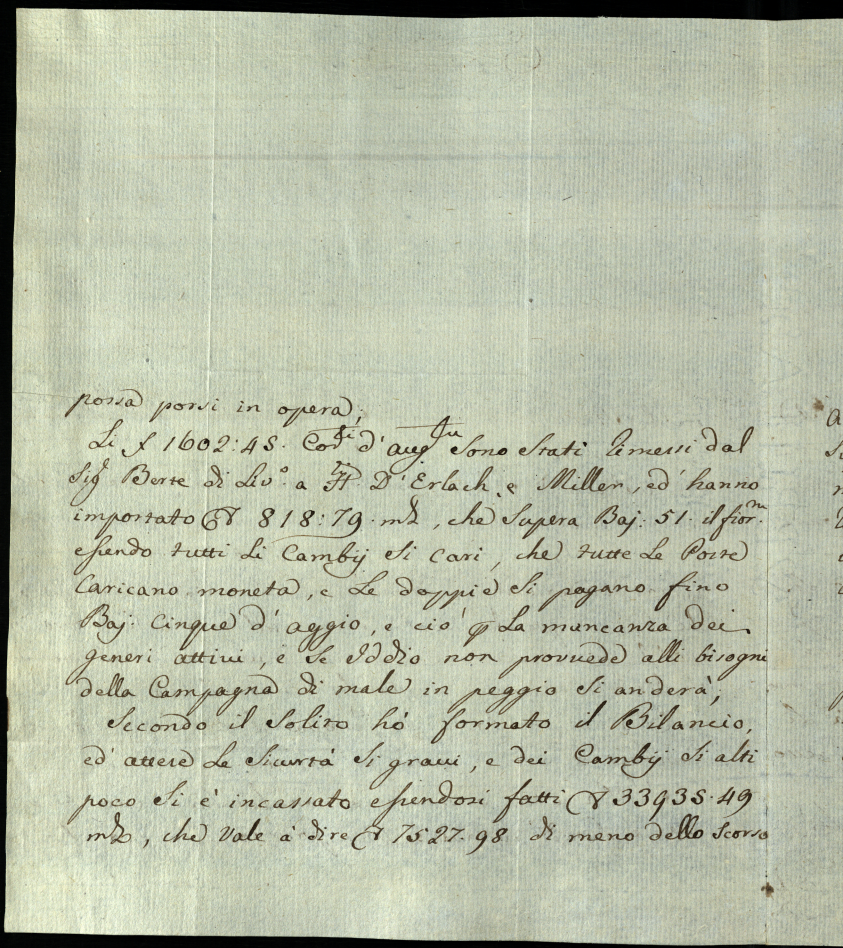 possa porsi in opera;
Li f 1602:45. Cor.ti d'aug.ta sono stati rimessi dal
Sig.r Berte di Liv.o a D'Erlach, e Miller, ed' hanno
importato ▽ 818:79. m.ta, che supera Baj: 51. il fior.no
essendo tutti li Cambij sì cari, che tutte le Poste
caricano moneta, e le doppie si pagano fino
Baj: cinque d'aggio, e ciò p la mancanza dei
generi attivi, e se Iddio non provvede alli bisogni
della Campagna di male in peggio si anderà;
Secondo il solito hò formato il Bilancio,
ed' attese le Sicurtà sì gravi, e dei Cambij sì alti
poco si è incassato essendosi fatti ▽ 33935.49
m.ta, che vale à dire ▽ 7527.98 di meno dello scorso